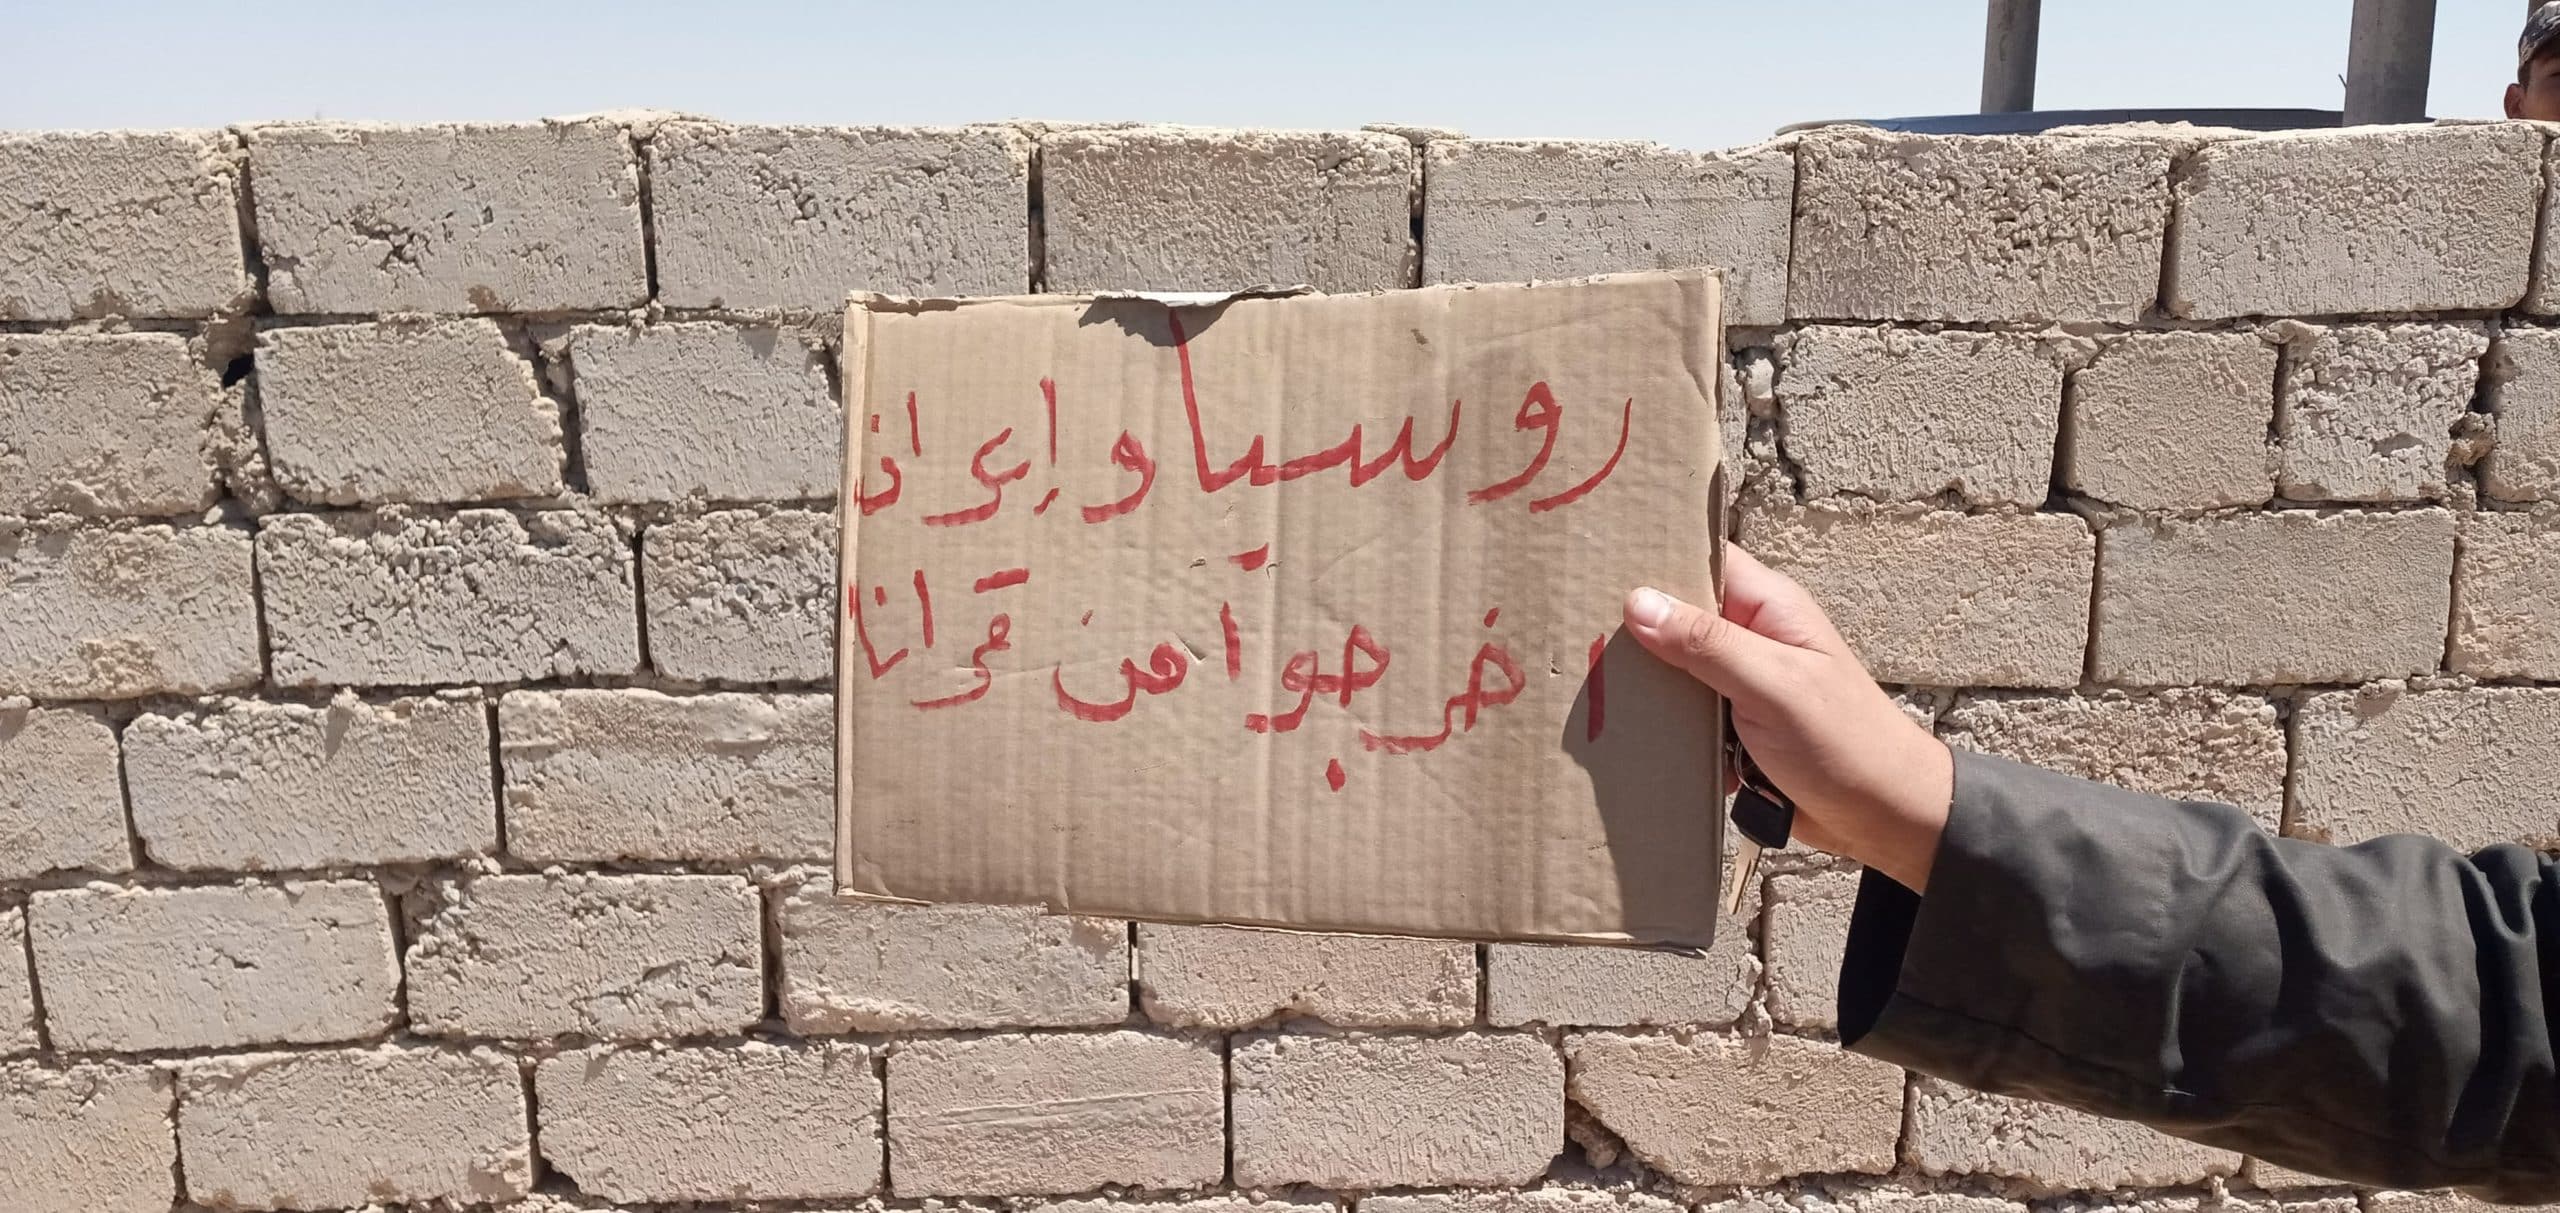 روسيا وإيران
اخرجوا من قرانا